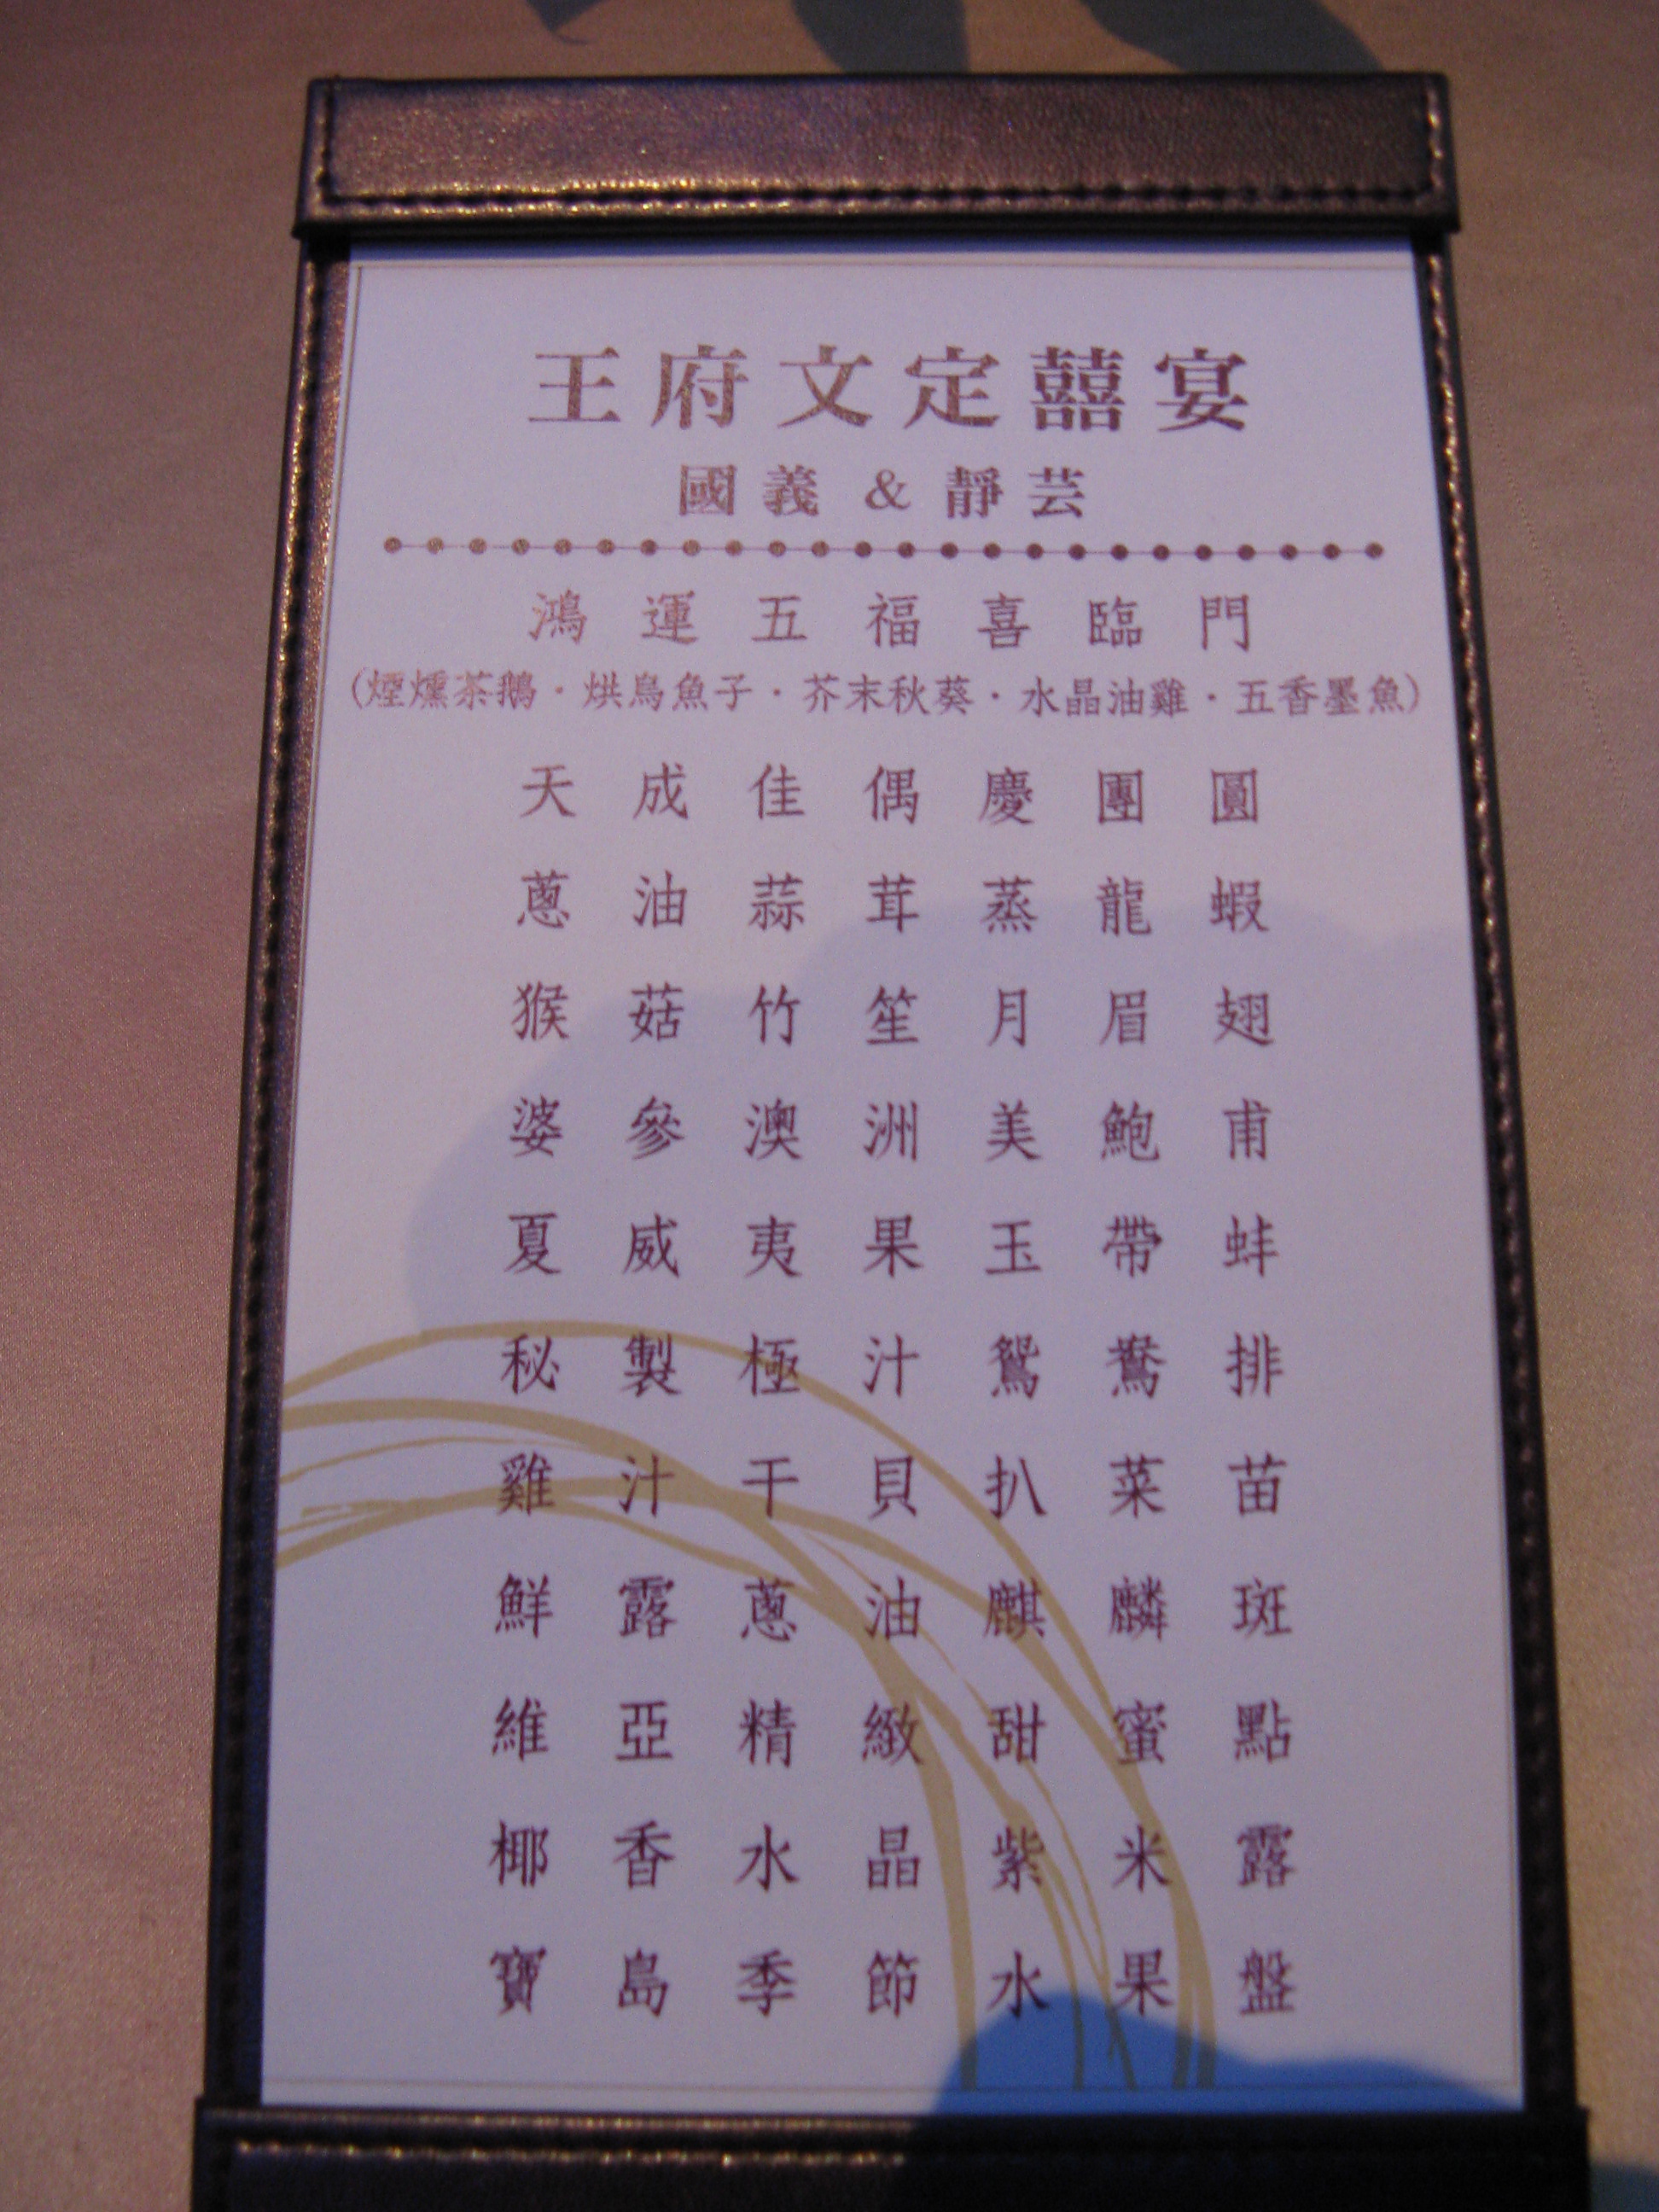 王府文定囍宴
國義 & 靜芸
鴻運五福喜臨門
(煙燻茶鵝・烘烏魚子・芥末秋葵・水晶油雞・五香墨魚)
天成佳偶慶團圓
蔥油蒜茸蒸龍蝦
猴菇竹笙月眉翅
婆參澳洲美鮑甫
夏威夷果玉帶蚌
秘製極汁鴛鴦排
雞汁干貝扒菜苗
鮮露蔥油麒麟斑
維亞精緻甜蜜點
椰香水晶紫米露
寶島季節水果盤